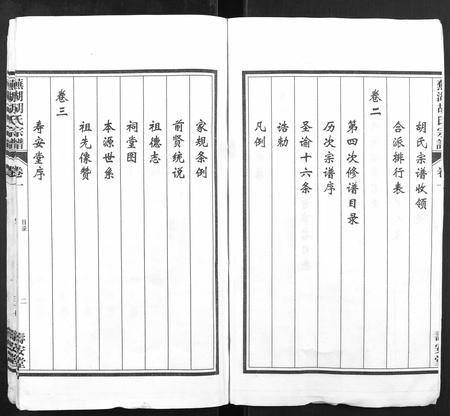 蕪湖胡氏宗譜 卷一
壽安堂
胡氏宗谱收领
合派排行表
卷二
第四次修谱目录
历次宗谱序
圣谕十六条
诰勅
凡例
家规条例
前贤统说
祖德志
祠堂图
本源世系
祖先像赞
卷三
寿安堂序
蕪湖胡氏宗譜 卷一 目录 二
壽安堂